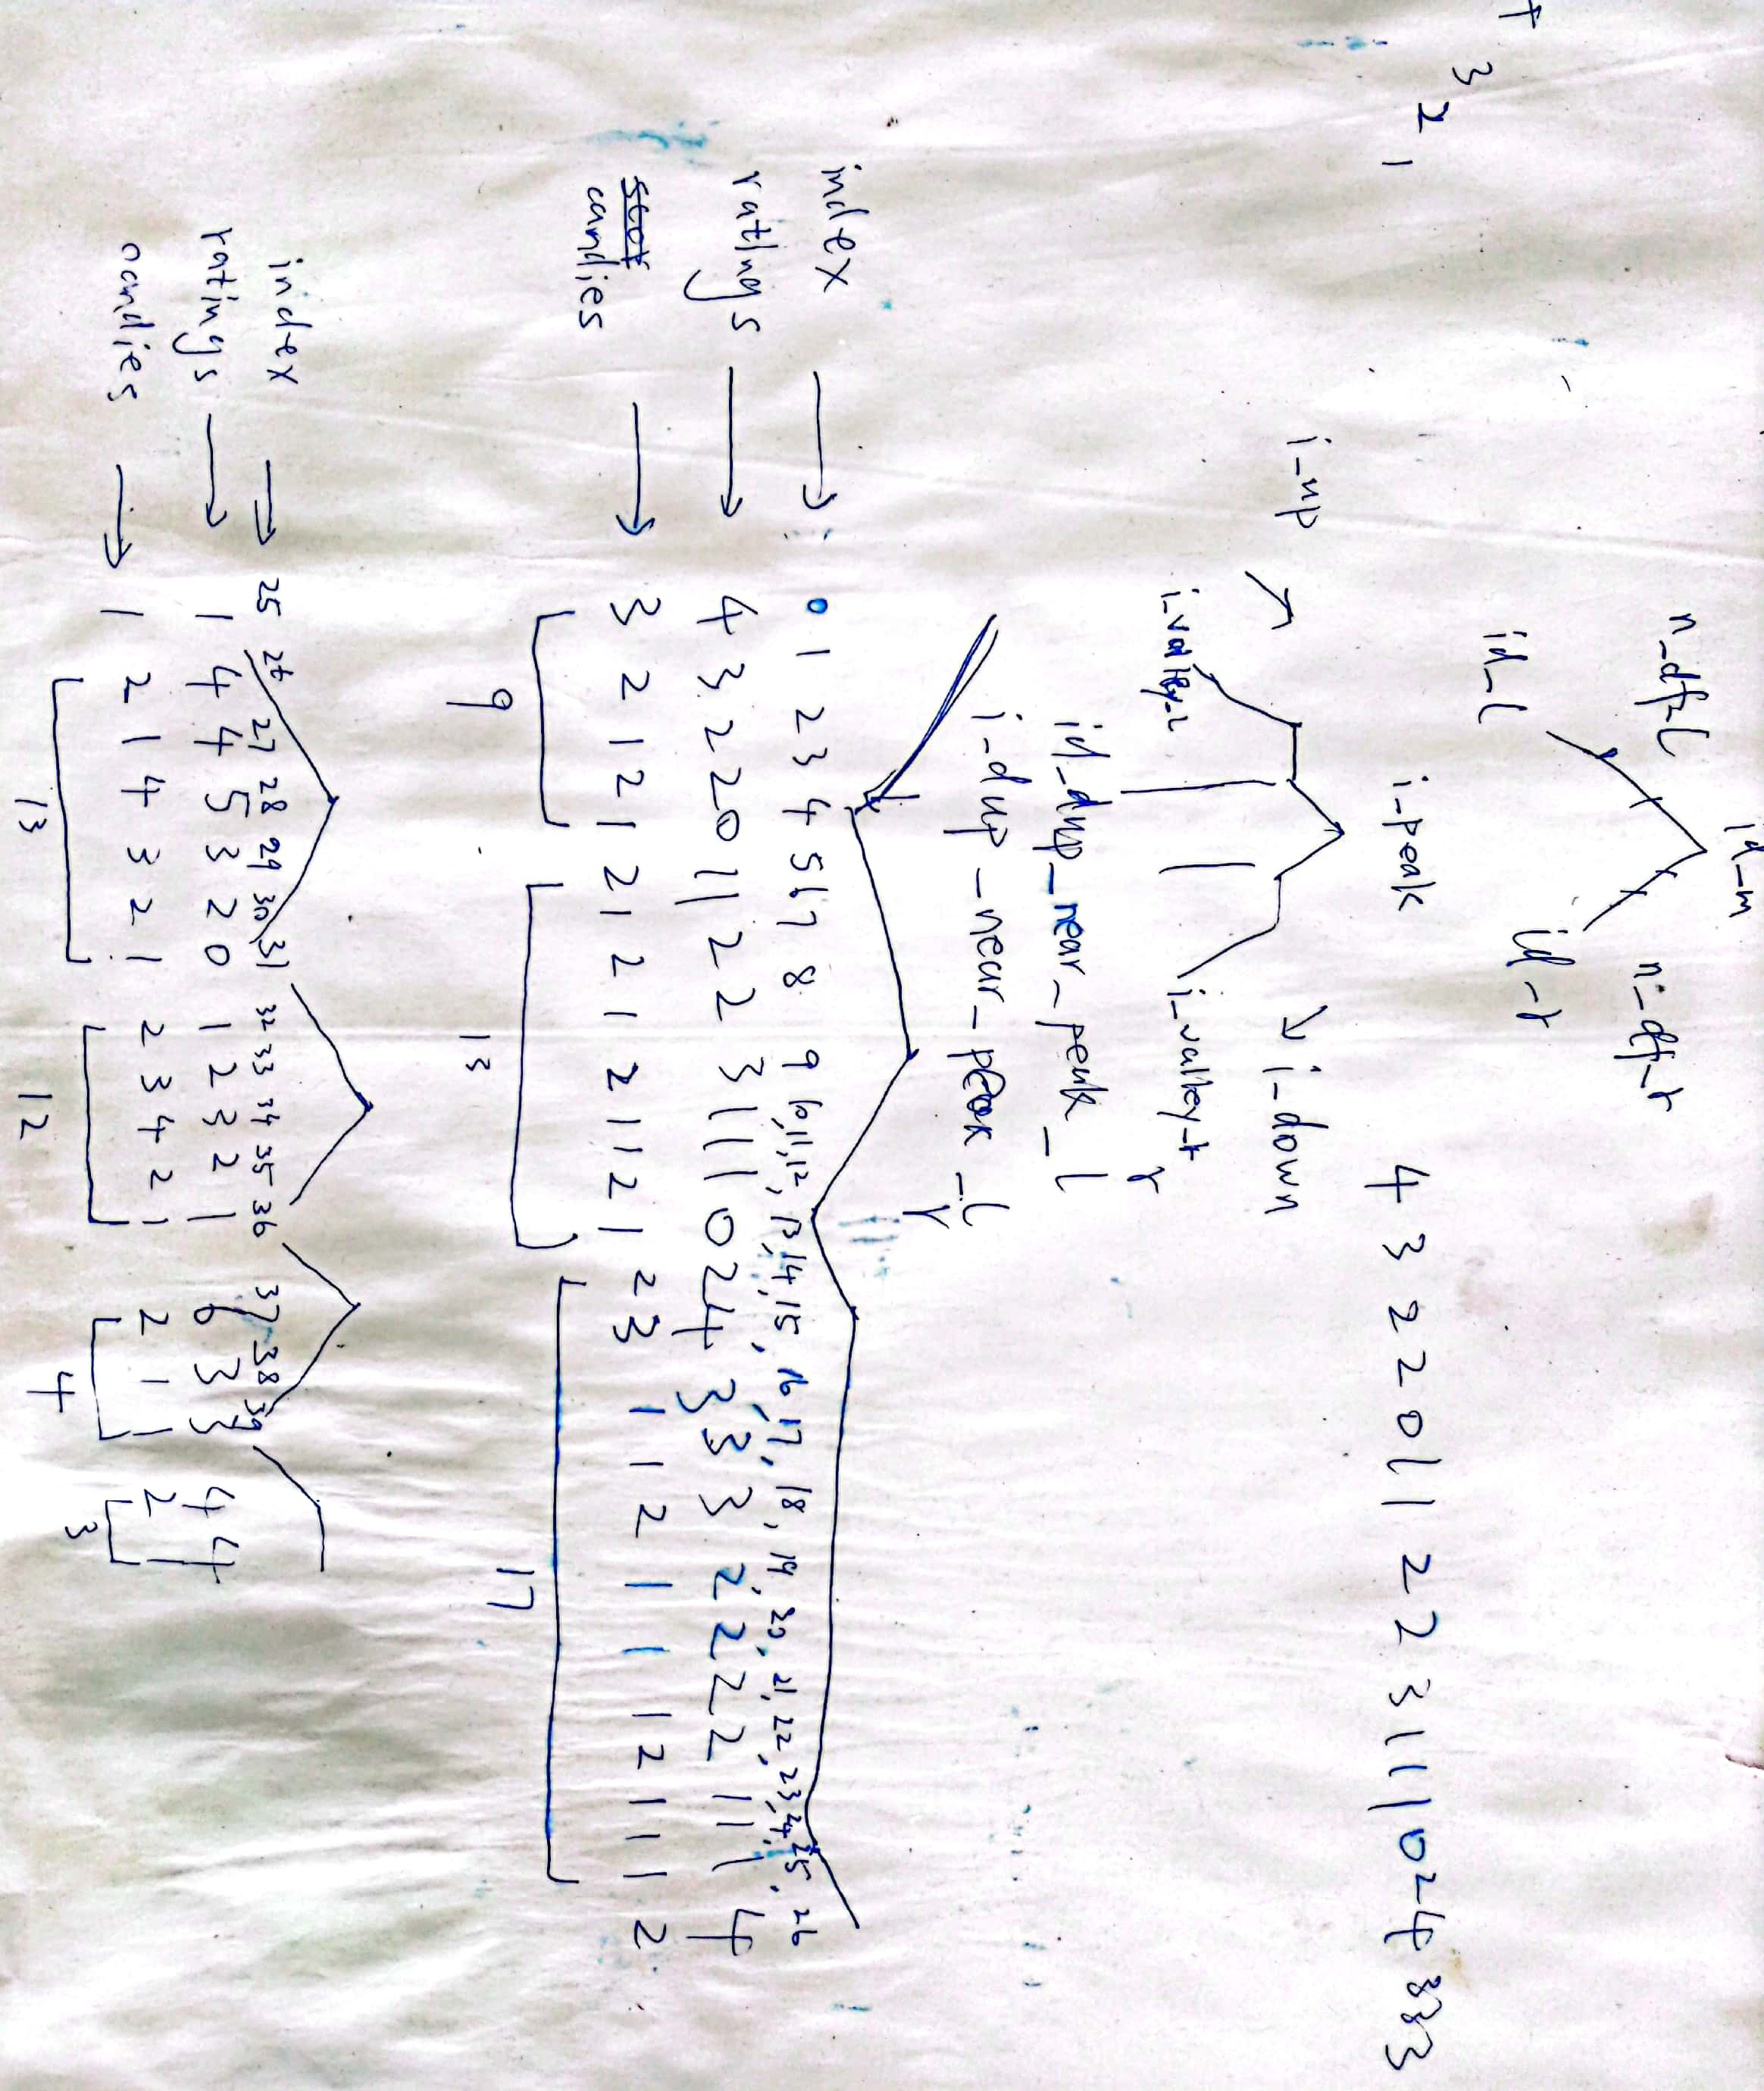 4 3 2 1
id_m
n_df_l n_df_r
id_l id_r
4 3 2 2 0 1 1 2 2 3 1 1 1 0 2 4 3 3 3
i_peak
i_up i_down
i_valley_l i_valley_r
id_dup_near_peak_l
r
i_dup_near_peak_l
r
index → 0 1 2 3 4 5 6 7 8 9 10, 11, 12, 13, 14, 15, 16, 17, 18, 19, 20, 21, 22, 23, 24, 25, 26
ratings → 4 3 2 2 0 1 1 2 2 3 1 1 1 0 2 4 3 3 3 2 2 2 2 1 1 1 4
candies → 3 2 1 2 1 2 1 2 1 2 1 1 2 1 2 3 1 1 2 1 1 1 2 1 1 1 2
9 13 17
index → 25 26 27 28 29 30 31 32 33 34 35 36 37 38 39
ratings → 1 4 4 5 3 2 0 1 2 3 2 1 6 3 3 4 4
candies → 1 2 1 4 3 2 1 2 3 4 2 1 2 1 1 2 1
13 12 4 3